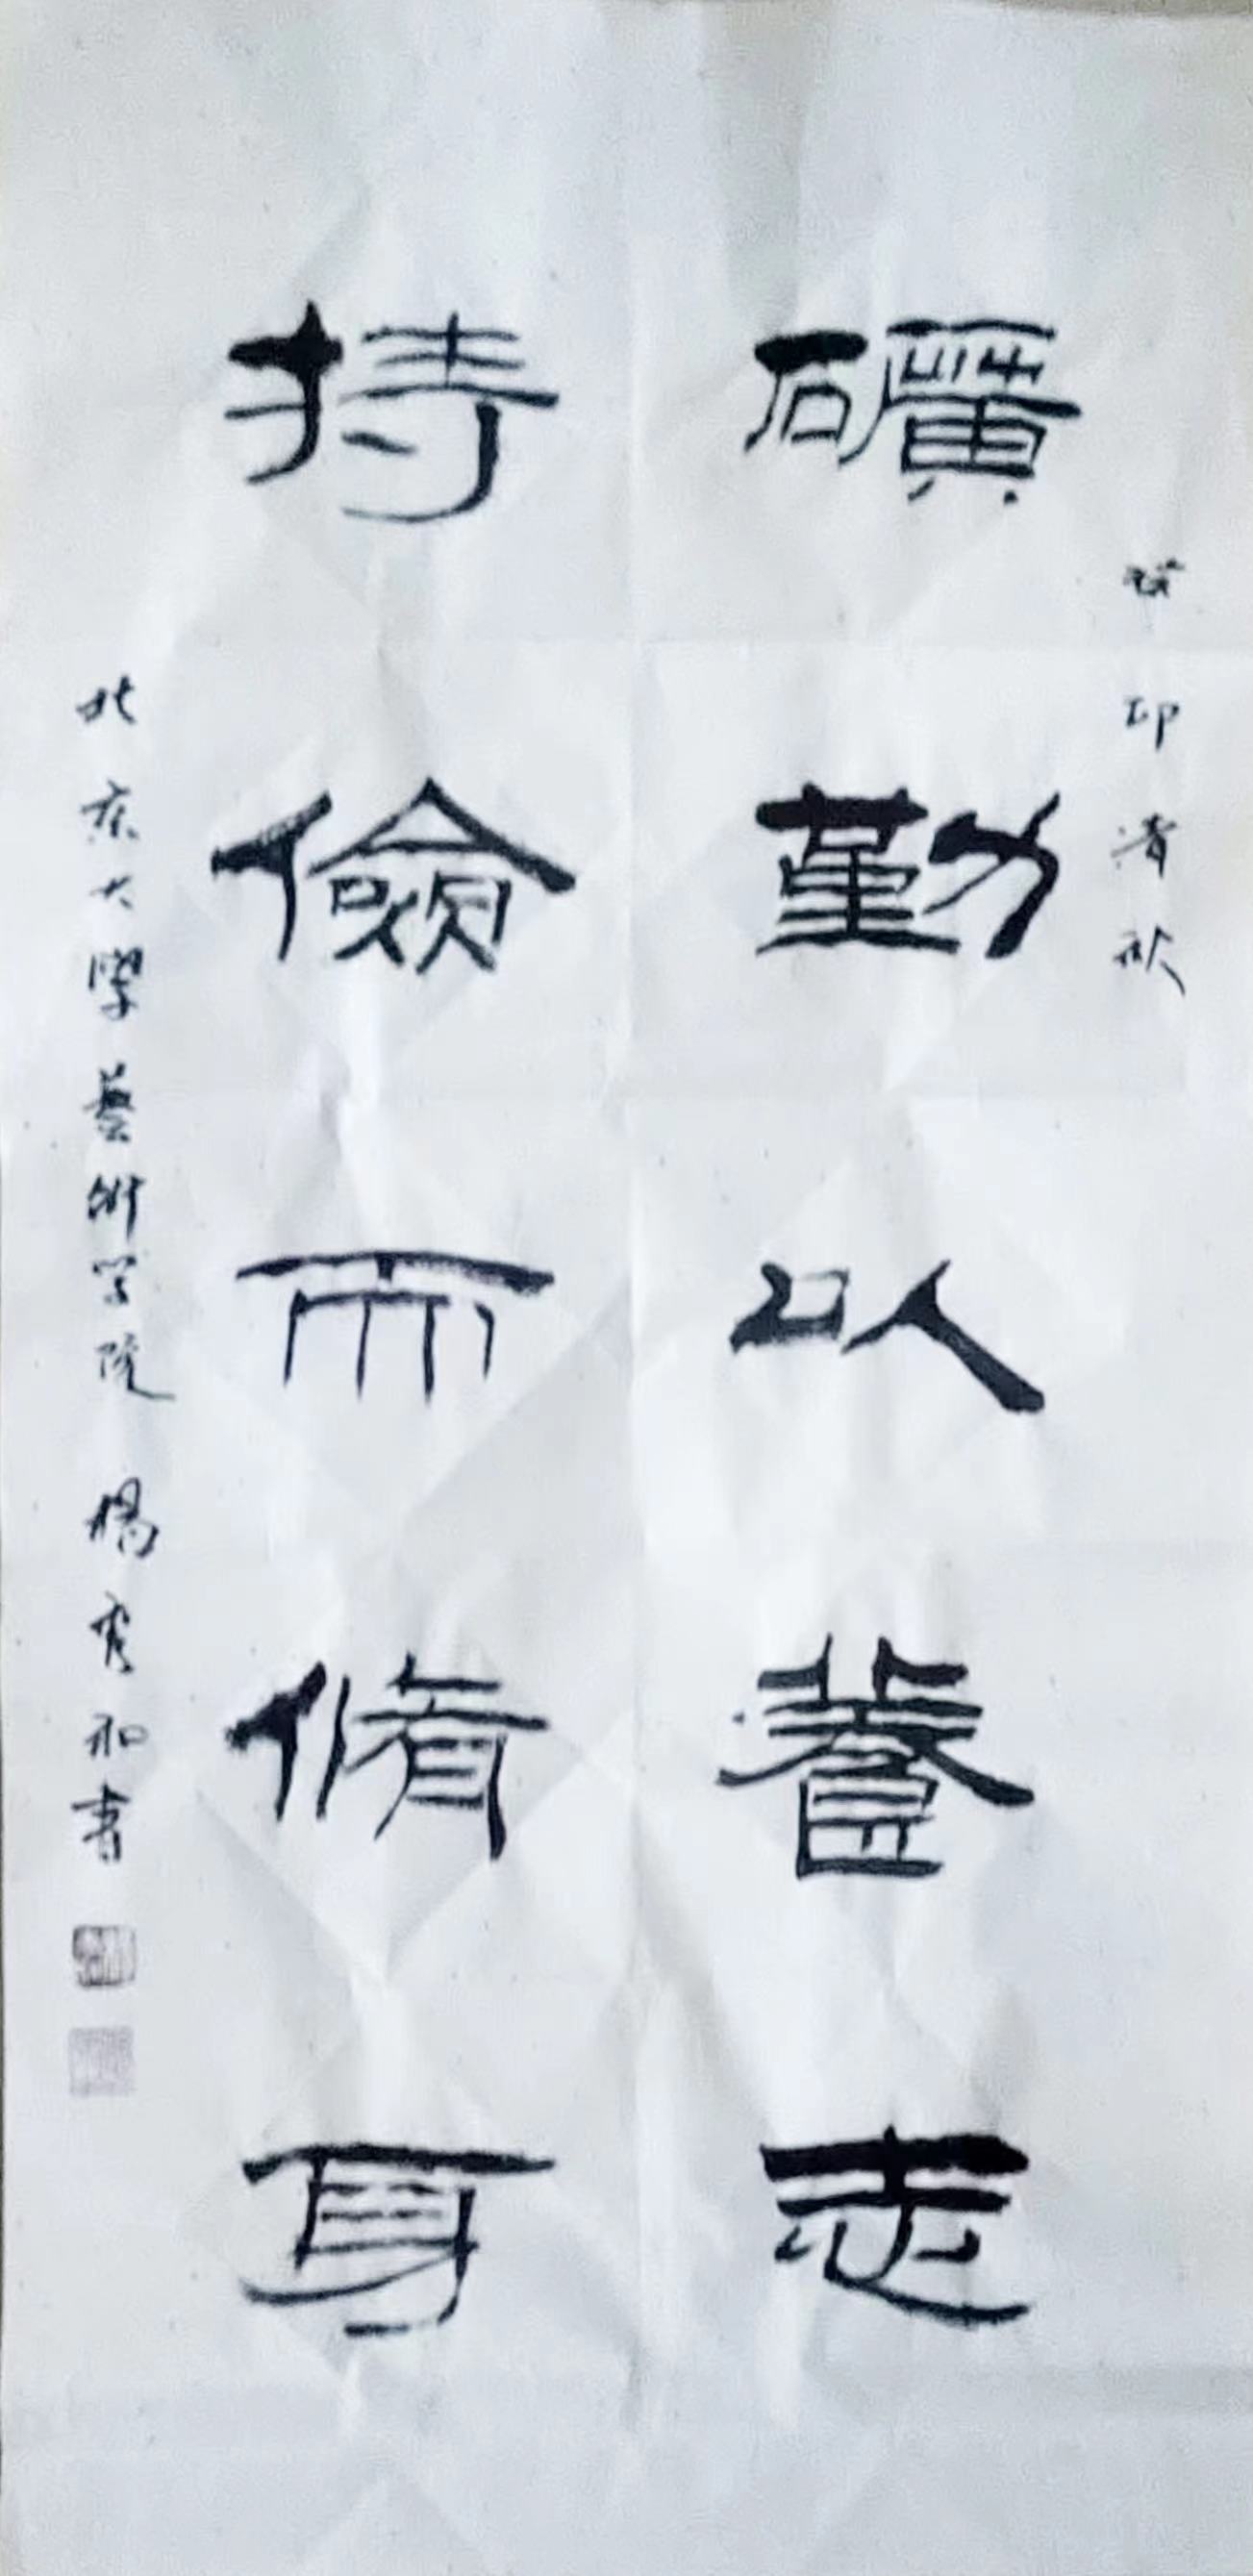 癸卯清秋
礦勤以養志
持儉而脩身
北京大學藝術学院 楊和書